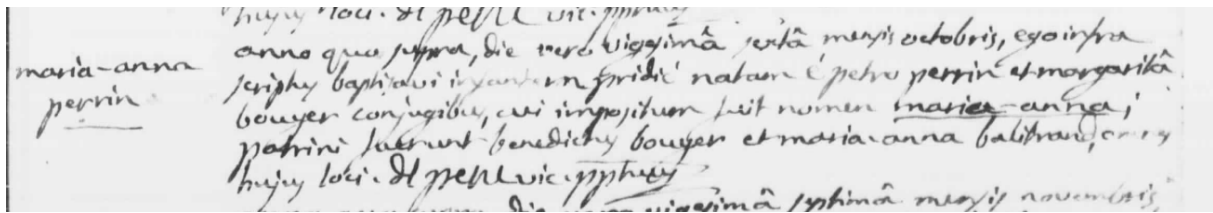 hujus loci. vic. pptuus
anno quo supra, die vero vigesimâ sextâ mensis octobris, ego infra
maria-anna perrin
scriptus baptisavi infantem pridié natam é petro perrin et margaritâ
bouyer conjugibus, cui impositum fuit nomen maria-anna;
patrini fuerunt benedictus bouyer et maria-anna balitrand, omnes
hujus loci. vic. pptuus
die vero vigesimâ septimâ mensis novembris